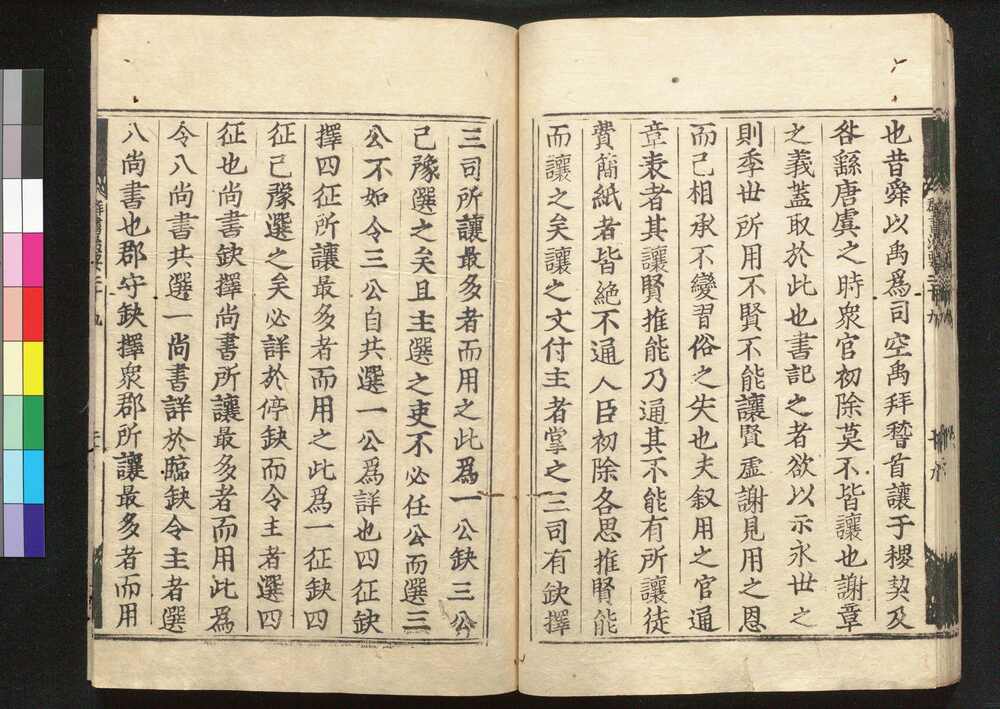 也昔舜以禹爲司空禹拜稽首讓于稷契及
咎繇唐虞之時衆官初除莫不皆讓也謝章
之義蓋取於此也書記之者欲以示永世之
則季世所用不賢不能讓賢虛謝見用之恩
而已相承不變習俗之失也夫叙用之官通
章表者其讓賢推能乃通其不能有所讓徒
費簡紙者皆絶不通人臣初除各思推賢能
而讓之矣讓之文付主者掌之三司有缺擇
三司所讓最多者而用之此爲一公缺三公
已豫選之矣且主選之吏不必任公而選三
公不如令三公自共選一公爲詳也四征缺
擇四征所讓最多者而用之此爲一征缺四
征已豫選之矣必詳於停缺而令主者選四
征也尚書缺擇尚書所讓最多者而用此爲
令八尚書共選一尚書詳於臨缺令主者選
八尚書也郡守缺擇衆郡所讓最多者而用